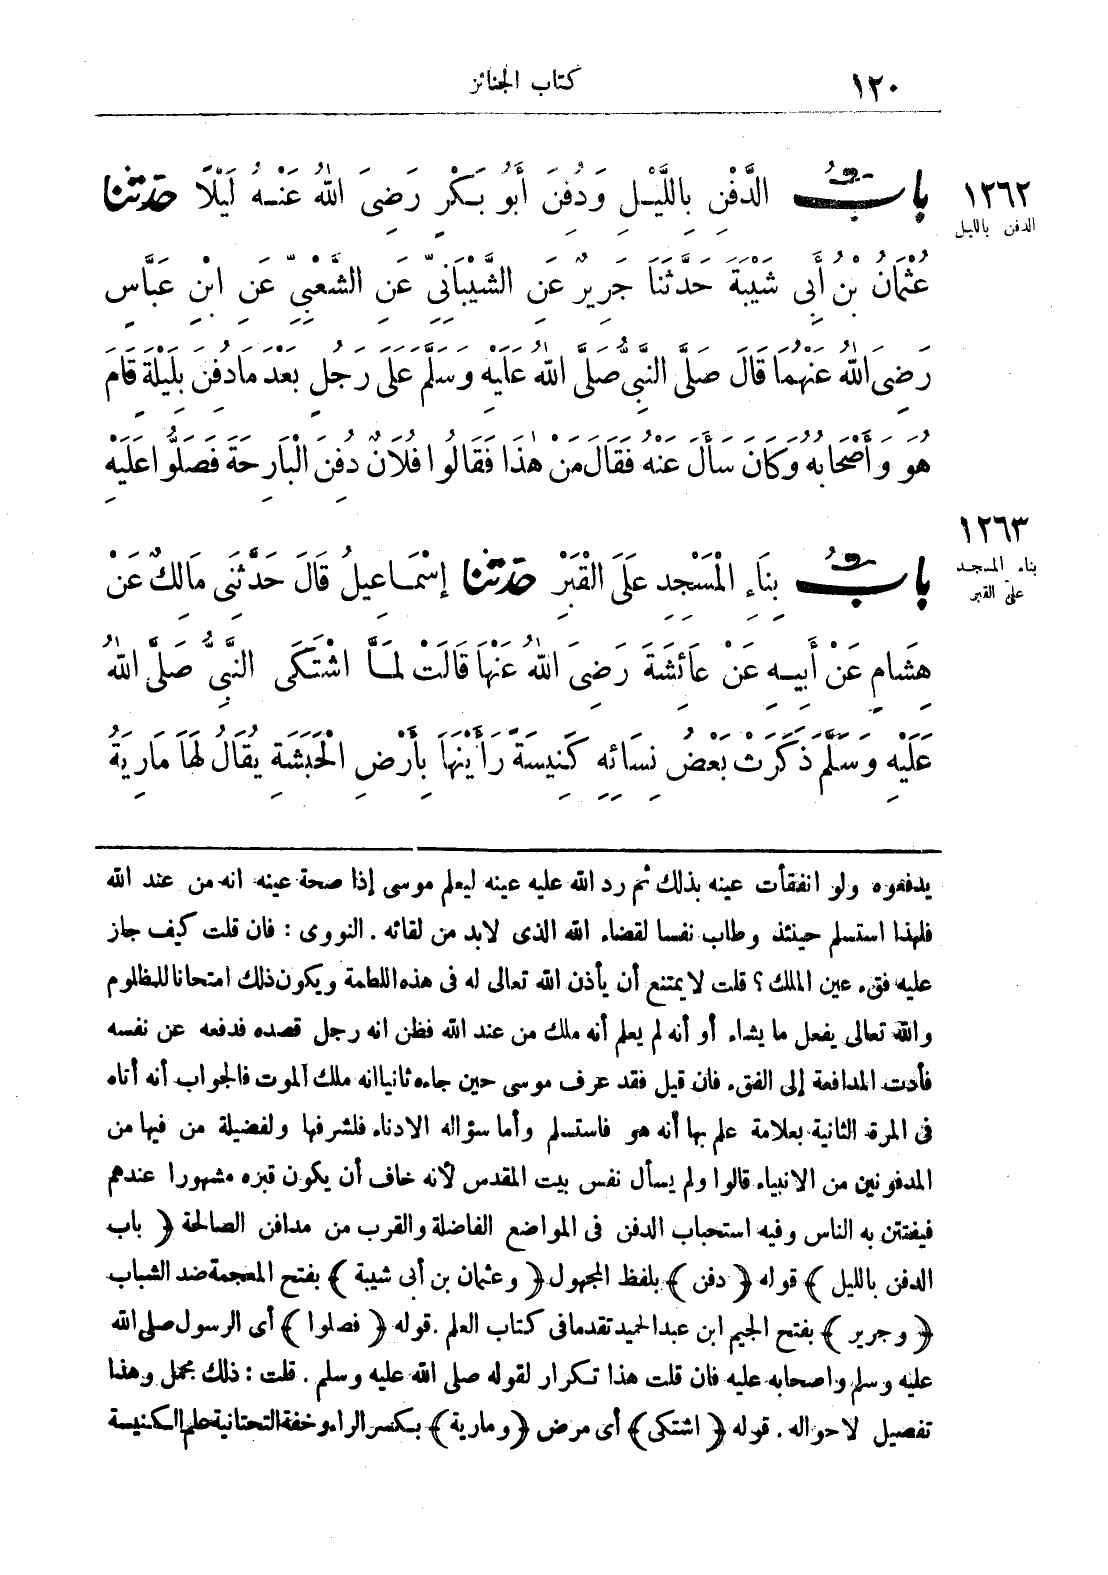 ١٢٠ كتاب الجنائز
١٢٦٢
الدفن بالليل
بابُ الدَّفْنِ بِاللَّيْلِ وَدُفِنَ أَبُو بَكْرٍ رَضِىَ اللهُ عَنْهُ لَيْلًا حدثنا
عُثْمَانُ بْنُ أَبِى شَيْبَةَ حَدَّثَنَا جَرِيرٌ عَنِ الشَّيْبَانِىِّ عَنِ الشَّعْبِىِّ عَنِ ابْنِ عَبَّاسٍ
رَضِىَ اللهُ عَنْهُمَا قَالَ صَلَّى النَّبِىُّ صَلَّى اللهُ عَلَيْهِ وَسَلَّمَ عَلَى رَجُلٍ بَعْدَ مَا دُفِنَ بِلَيْلَةٍ قَامَ
هُوَ وَأَصْحَابُهُ وَكَانَ سَأَلَ عَنْهُ فَقَالَ مَنْ هٰذَا فَقَالُوا فُلَانٌ دُفِنَ الْبَارِحَةَ فَصَلَّوْا عَلَيْهِ
١٢٦٣
بناء المسجد
على القبر
بابُ بِنَاءِ الْمَسْجِدِ عَلَى الْقَبْرِ حدثنا إِسْمَاعِيلُ قَالَ حَدَّثَنِى مَالِكٌ عَنْ
هِشَامٍ عَنْ أَبِيهِ عَنْ عَائِشَةَ رَضِىَ اللهُ عَنْهَا قَالَتْ لَمَّا اشْتَكَى النَّبِىُّ صَلَّى اللهُ
عَلَيْهِ وَسَلَّمَ ذَكَرَتْ بَعْضُ نِسَائِهِ كَنِيسَةً رَأَيْنَهَا بِأَرْضِ الْحَبَشَةِ يُقَالُ لَهَا مَارِيَةُ
يدفعوه ولو انفقأت عينه بذلك ثم رد الله عليه عينه ليعلم موسى إذا صحة عينه انه من عند الله
فلهذا استسلم حينئذ وطاب نفسا لقضاء الله الذى لابد من لقائه . النووى : فان قلت كيف جاز
عليه فقء عين الملك ؟ قلت لا يمتنع أن يأذن الله تعالى له فى هذه اللطمة ويكون ذلك امتحانا للمظلوم
والله تعالى يفعل ما يشاء أو أنه لم يعلم أنه ملك من عند الله فظن انه رجل قصده فدفعه عن نفسه
فأدت المدافعة إلى الفقء فان قيل فقد عرف موسى حين جاءه ثانيا انه ملك الموت فالجواب أنه أتاه
فى المرة الثانية بعلامة علم بها أنه هو فاستسلم وأما سؤاله الادناء فلشرفها ولفضيلة من فيها من
المدفونين من الانبياء قالوا ولم يسأل نفس بيت المقدس لأنه خاف أن يكون قبره مشهورا عندهم
فيفتتن به الناس وفيه استحباب الدفن فى المواضع الفاضلة والقرب من مدافن الصالحة ﴿ باب
الدفن بالليل ﴾ قوله ﴿ دفن ﴾ بلفظ المجهول ﴿ وعثمان بن أبى شيبة ﴾ بفتح المعجمة ضد الشباب
﴿ وجرير ﴾ بفتح الجيم ابن عبد الحميد تقدما فى كتاب العلم . قوله ﴿ فصلوا ﴾ أى الرسول صلى الله
عليه وسلم واصحابه عليه فان قلت هذا تكرار لقوله صلى الله عليه وسلم . قلت : ذلك مجمل وهذا
تفصيل لاحواله . قوله ﴿ اشتكى ﴾ أى مرض ﴿ ومارية ﴾ بكسر الراء وخفة التحتانية علم الكنيسة